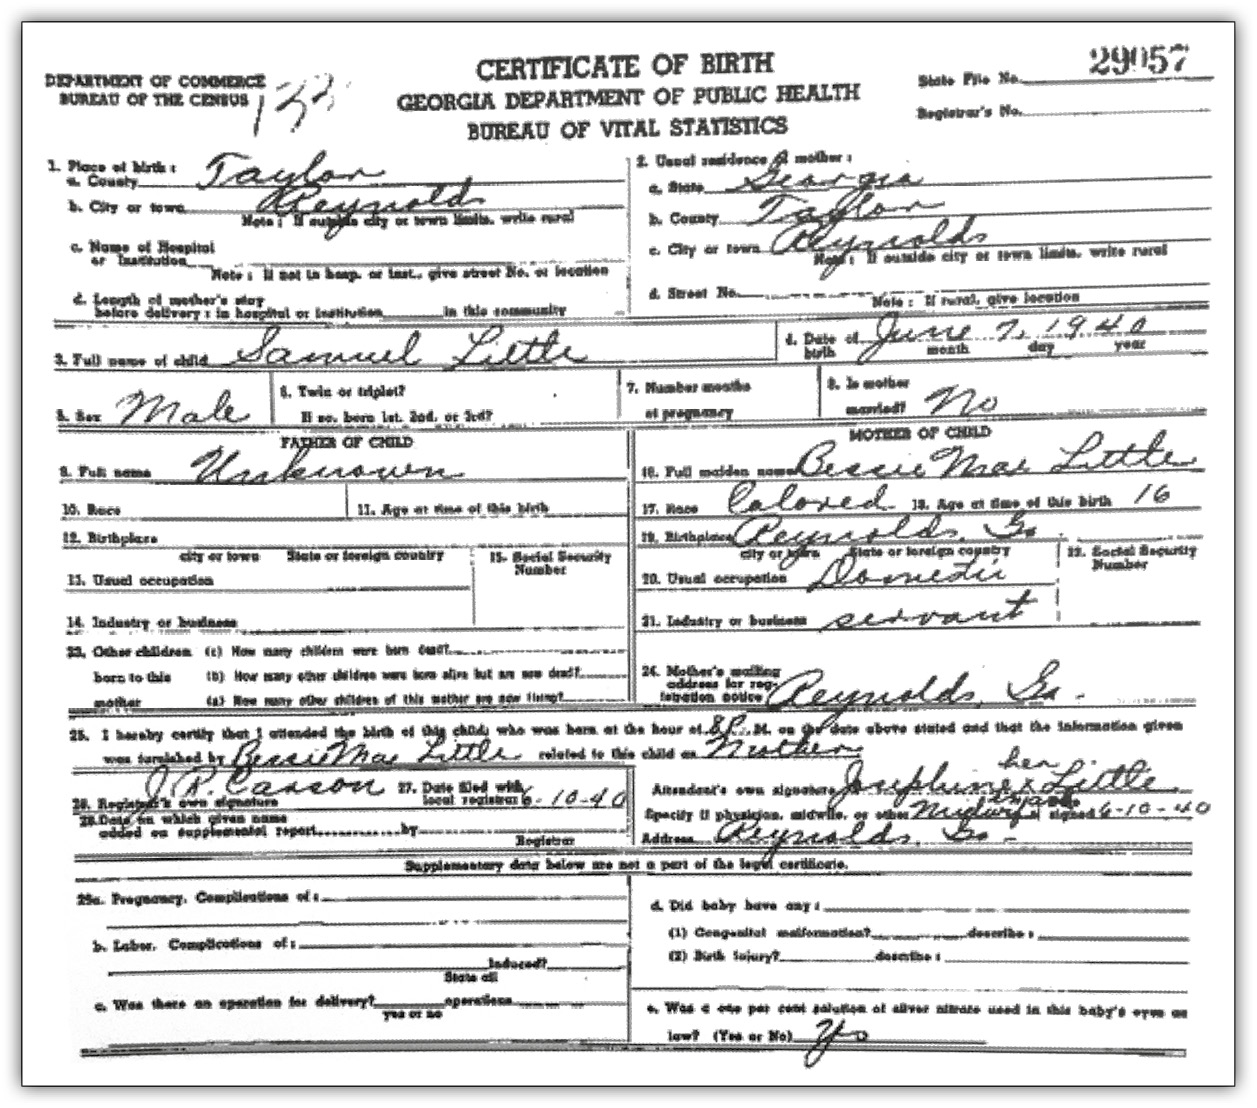 DEPARTMENT OF COMMERCE
BUREAU OF THE CENSUS
CERTIFICATE OF BIRTH
GEORGIA DEPARTMENT OF PUBLIC HEALTH
BUREAU OF VITAL STATISTICS
State File No. 29057
Registrar's No.
1. Place of birth:
a. County Taylor
b. City or town Reynolds
Note: If outside city or town limits, write rural
c. Name of Hospital
or Institution
Note: If not in hosp. or inst., give street No. or location
d. Length of mother's stay
before delivery: in hospital or institution in this community
2. Usual residence of mother:
a. State Georgia
b. County Taylor
c. City or town Reynolds
Note: If outside city or town limits, write rural
d. Street No.
Note: If rural, give location
3. Full name of child Samuel Little
4. Date of birth June 7, 1940
month day year
5. Sex Male
6. Twin or triplet?
If so, born 1st, 2nd, or 3rd?
7. Number months
of pregnancy
8. Is mother
married? No
FATHER OF CHILD
9. Full name Unknown
10. Race 11. Age at time of this birth
12. Birthplace
city or town State or foreign country
13. Usual occupation
15. Social Security
Number
14. Industry or business
MOTHER OF CHILD
16. Full maiden name Bessie Mae Little
17. Race Colored 18. Age at time of this birth 16
19. Birthplace Reynolds, Ga.
city or town State or foreign country
20. Usual occupation Domestic
22. Social Security
Number
21. Industry or business servant
23. Other children (c) How many children were born dead?
born to this (b) How many other children were born alive but are now dead?
mother (a) How many other children of this mother are now living?
24. Mother's mailing
address for reg-
istration notice Reynolds, Ga.
25. I hereby certify that I attended the birth of this child; who was born at the hour of 8 P. M. on the date above stated and that the information given
was furnished by Bessie Mae Little related to this child as Mother
26. Registrar's own signature J. R. Carson
27. Date filed with
local registrar 6-10-40
28. Date on which given name
added on supplemental report by
Registrar
her
Attendent's own signature Josephine x Little
mark
Specify if physician, midwife, or other Midwife signed 6-10-40
Address Reynolds, Ga.
Supplementary data below are not a part of the legal certificate.
25a. Pregnancy, Complications of:
b. Labor, Complications of:
Induced?
State all
c. Was there an operation for delivery? operations
yes or no
d. Did baby have any:
(1) Congenital malformation? describe:
(2) Birth Injury? describe:
e. Was a one per cent solution of silver nitrate used in this baby's eyes as
law? (Yes or No) Yes